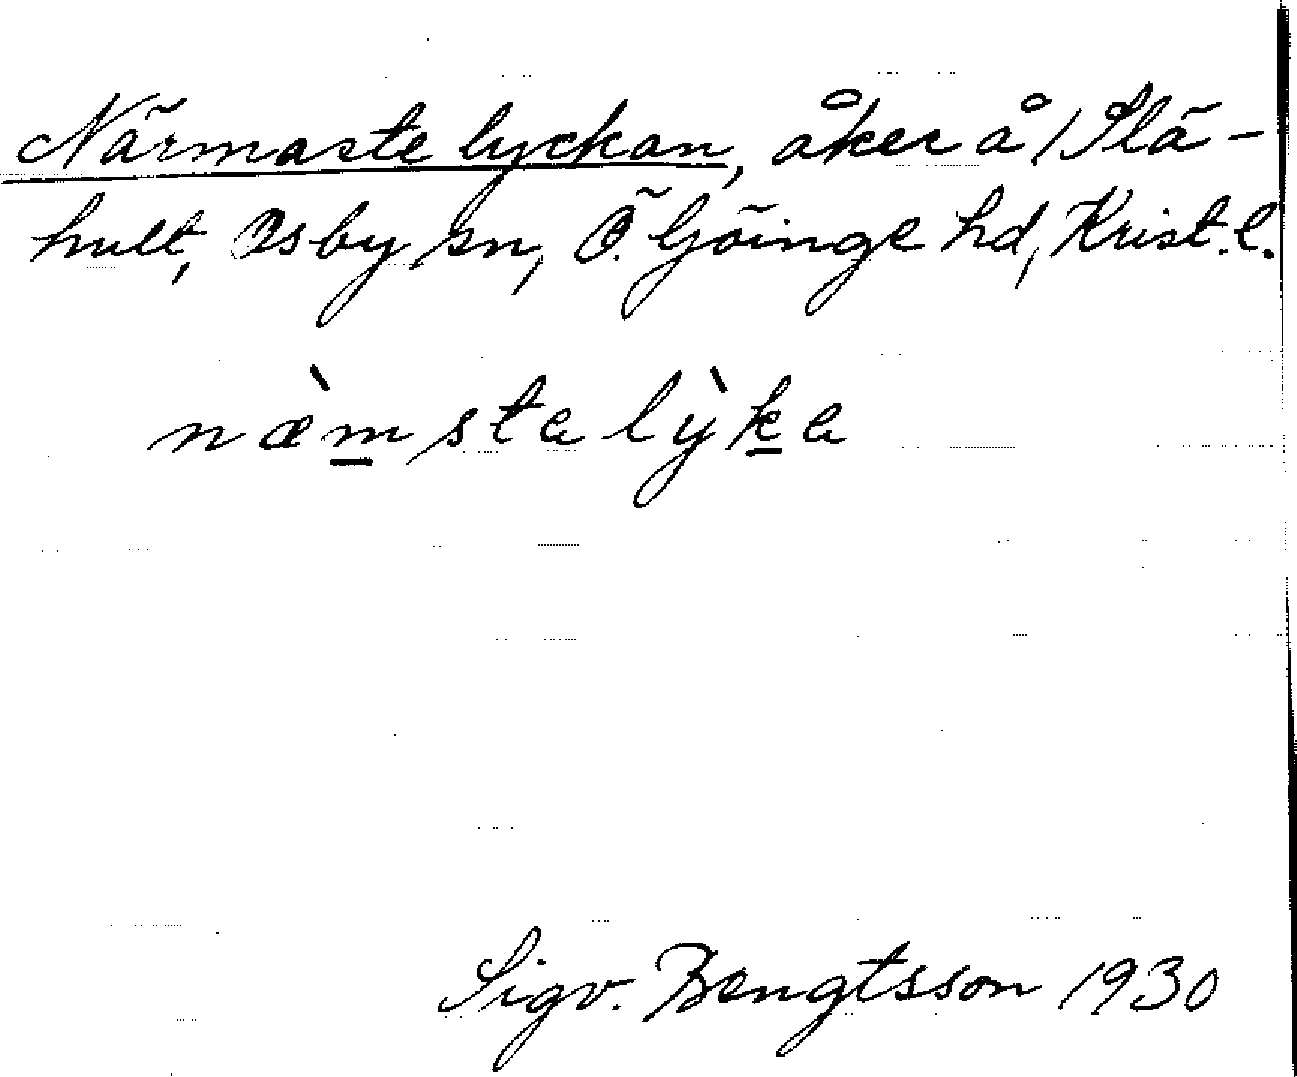 Närmaste lyckan, åker å Slä-
hult, Osby sn, Ö. Göinge hd, Krist. l.
næ̀m̲sta lỳk̲a
Sigv. Bengtsson 1930